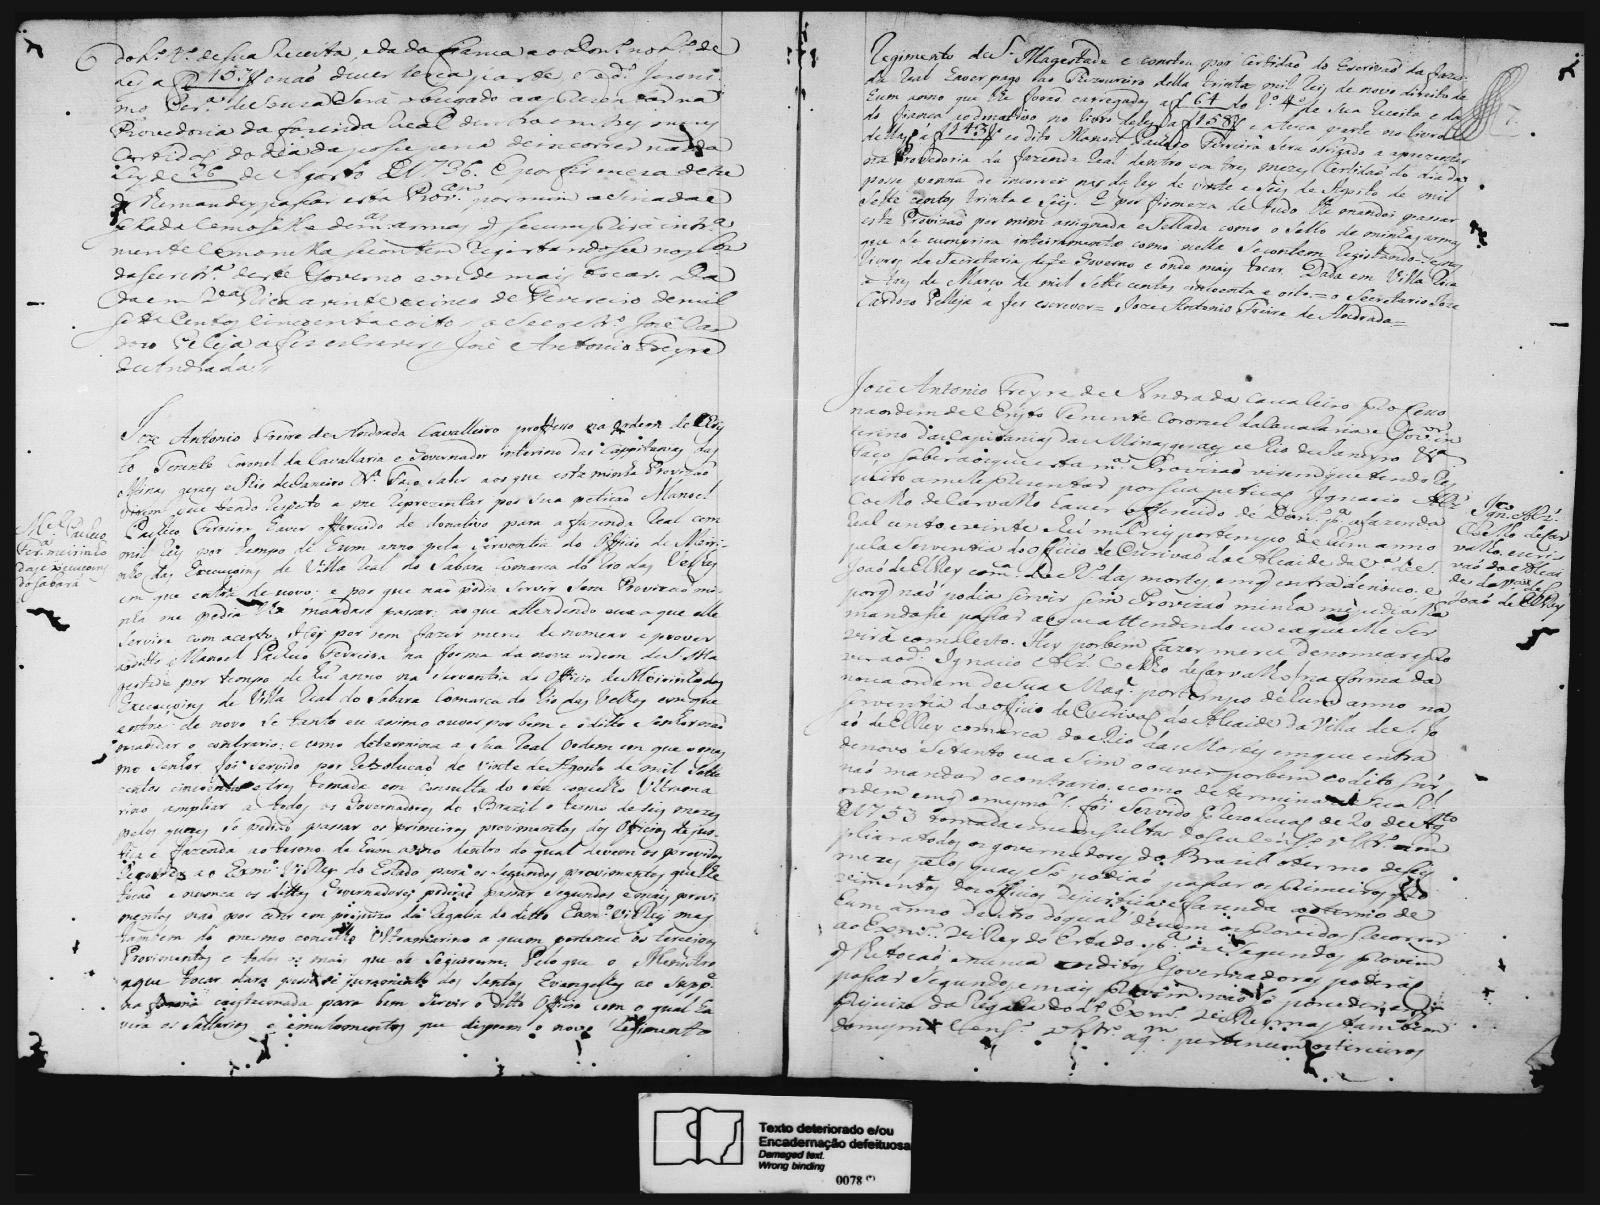 do L.º 4.º de Sua Receita, e da da fiança ao don.º no L.º de
Ley a f 157 e naõ dever terça parte e o d.º Jeroni
mo Per.ª de Souza Será obrigado a apresentar na
Provedoria da fazenda Real dentro em tres mezes
Certidaõ do dia da posse pena de incorrer na da
Ley de 26 de Agosto de 1736. E por firmeza de tu
do lhe mandey passar esta Prov.am por mim asinada e
Sellada Como Selle de m.as armas q̃ se cumprirá intr.a
mente Como nella se contem Registandose nos L.os
da Secretr.ª deste Governo e onde mais tocar. Da
da em V.ª Rica a vinte e cinco de Fevereiro de mil
Sete Centos Cincoenta e oito, o Secretr.º Jozé Car
dozo Peleja a fez escrever, Jozê Antonio Freyre
de Andrada,,
Joze Antonio Freire de Andrada Cavalleiro professo na ordem de Chris
to Tenente Coronel da Cavallaria e Governador interino das Cappitanias das
Minas geraes e Rio de Janeiro &.ª Faço saber aos que esta minha Provizaõ
virem, que tendo respeito a me representar por sua petiçaõ Manoel
Pacheco Ferreira haver offerecido de donativo para a fazenda Real cem
mil reis por tempo de hum anno pela Serventia do Officio de Meiri
nho das Execuçoins de Villa Real do Sabara Comarca do Rio das Velhas
em que entra de novo; e por que naõ podia Servir Sem Provizaõ mi
nha me pedia lhe mandase passar: ao que attendendo eu e a que elle
Servira com acerto, Hey por bem fazer merce de nomear e prover
ao ditto Manoel Pacheco Ferreira na forma da nova ordem de S. Ma
gestade por tempo de hũ anno na Serventia do Officio de Meirinho das
Execuçoins de Villa Real do Sabara Comarca do Rio das Velhas em que
entra de novo Se tanto eu asim o ouver por bem e o ditto Senhor naõ
mandar o contrario; e como determina a Sua Real Ordem em que o mes
mo Senhor foi servido por Rezoluçaõ de vinte de Agosto de mil Sette
centos cincoenta e tres tomada em consulta do seu conselho Ultrama
rino ampliar a todos os Governadores do Brazil o termo de seis mezes
pelos quaes só podiaõ passar os primeiros provimentos dos Officios de jus
tiça e fazenda ao termo de hum anno dentro do qual devem os providos
recorrer ao Exm.º Vi Rey do Estado para os segundos provimentos que lhe
tocaõ e nunca os dittos Governadores poderaõ passar segundos e mais provi
mentos naõ por ceder em prejuizo da Regalia do ditto Exm.º Vi Rey mas
tambem do mesmo conselho Ultramarino a quem pertence os terceiros
Provimentos e todos os mais que se seguirem. Pelo que o Ministro
a que tocar dará posse e juramento dos Santos Evangelhos ao Supp.e
na forma costumada para bem Servir o ditto Officio com o qual ha
verá os Sallarios e emulumentos que dispoem o novo Regimento
M.el Pacheco
Ferr.ª meirinho
das execuçoins
do Sabará
Regimento de S. Magestade e constou por Certidaõ do Escrivaõ da fazen
da Real haver pago ao Thezoureiro della trinta mil reis de novo direito de
hum anno que lhe foraõ carregados a f 64 do L.º 4.º de Sua Receita e da
do fiança ao donativo no livro delles a f 158 e a terça parte no livro
dellas a f 143 e o dito Manoel Pacheco Ferreira Será obrigado a aprezentar
na Provedoria da fazenda Real dentro em tres mezes Certidaõ do dia da
posse penna de incorrer nas da ley de vinte e Seis de Agosto de mil
Sette centos trinta e Seis. E por firmeza de tudo lhe mandei passar
esta Provizaõ por mim assignada e Sellada com o Sello de minhas armas
que Se cumprira inteiramente como nella Se contem Registando-se nos
livros da Secretaria deste Governo e onde mais tocar. Dada em Villa Rica
a tres de Março de mil Sette centos cincoenta e oito = o Secretario Joze
Cardozo Pelleja a fes escrever = Joze Antonio Freire de Andrada =
Jozê Antonio Freyre de Andrada Cavaleiro professo
na ordem de Christo Tenente Coronel da Cavalaria e Gov.or in
terino das Capitanias das Minas geraes e Rio de Janeyro &.ª
Faço saber aos que esta m.ª Provizaõ virem q̃ tendo Res
peito a me Reprezentar por sua petiçaõ Ignacio Alz.
Coelho de Carvalho haver offerecido de Don.º p.ª a fazenda
Real cento e vinte e hũ mil reis por tempo de hum anno
pela Serventia do officio de Escrivaõ do Alcaide da V.ª de S.
Joaõ de ElRey com.ca do R.º das mortes, em q̃ entra de novo, e
porq̃ naõ podia servir sem Provizaõ minha me pedia lha
mandase passar ao que attendendo eu e a que elle Ser
virá com acerto. Hey por bem fazer merce de nomear e pro
ver ao d.º Ignacio Alz. Coelho de Carvalho na forma da
nova ordem de Sua Mag.e por tempo de hum anno na
Serventia do officio de Escrivaõ do Alcaide da Villa de S. Jo
aõ de ElRey comarca do Rio das Mortes em que entra
de novo Se tanto eu asim o ouver por bem e o dito Snr̃
naõ mandar o contrario; e como determina a Real
ordem em q̃ o mesmo S.r foi Servido por Rezoluçaõ de 20 de Ag.to
de 1753 tomada em consulta do Seu Cons.º Ultr.º am
pliar a todos os governadores do Brazil o termo de seis
mezes pelos quaes Só podiaõ passar os primeiros pro
vimentos dos officios de justiça e fazenda ao termo de
hum anno dentro do qual devem os providos Recorrer
ao Exm.º Vi Rey do Estado p.ª os Segundos provim.tos
q̃ lhe tocaõ e nunca os ditos Governadores poderaõ
passar Segundos e mais provim.tos naõ Só por ceder em
prejuizo da Regalia do d.º Exm.º Vi Rey mas tambem
do mesmo Cons.º Ultr.º a q.m pertencem os terceiros
Ign.co Alz.
Coelho de Car
valho, escri
vaõ do Alcai
de da V.ª de S.
Joaõ de ElRey
Texto deteriorado e/ou
Encadernação defeituosa
Damaged text.
Wrong binding
0078